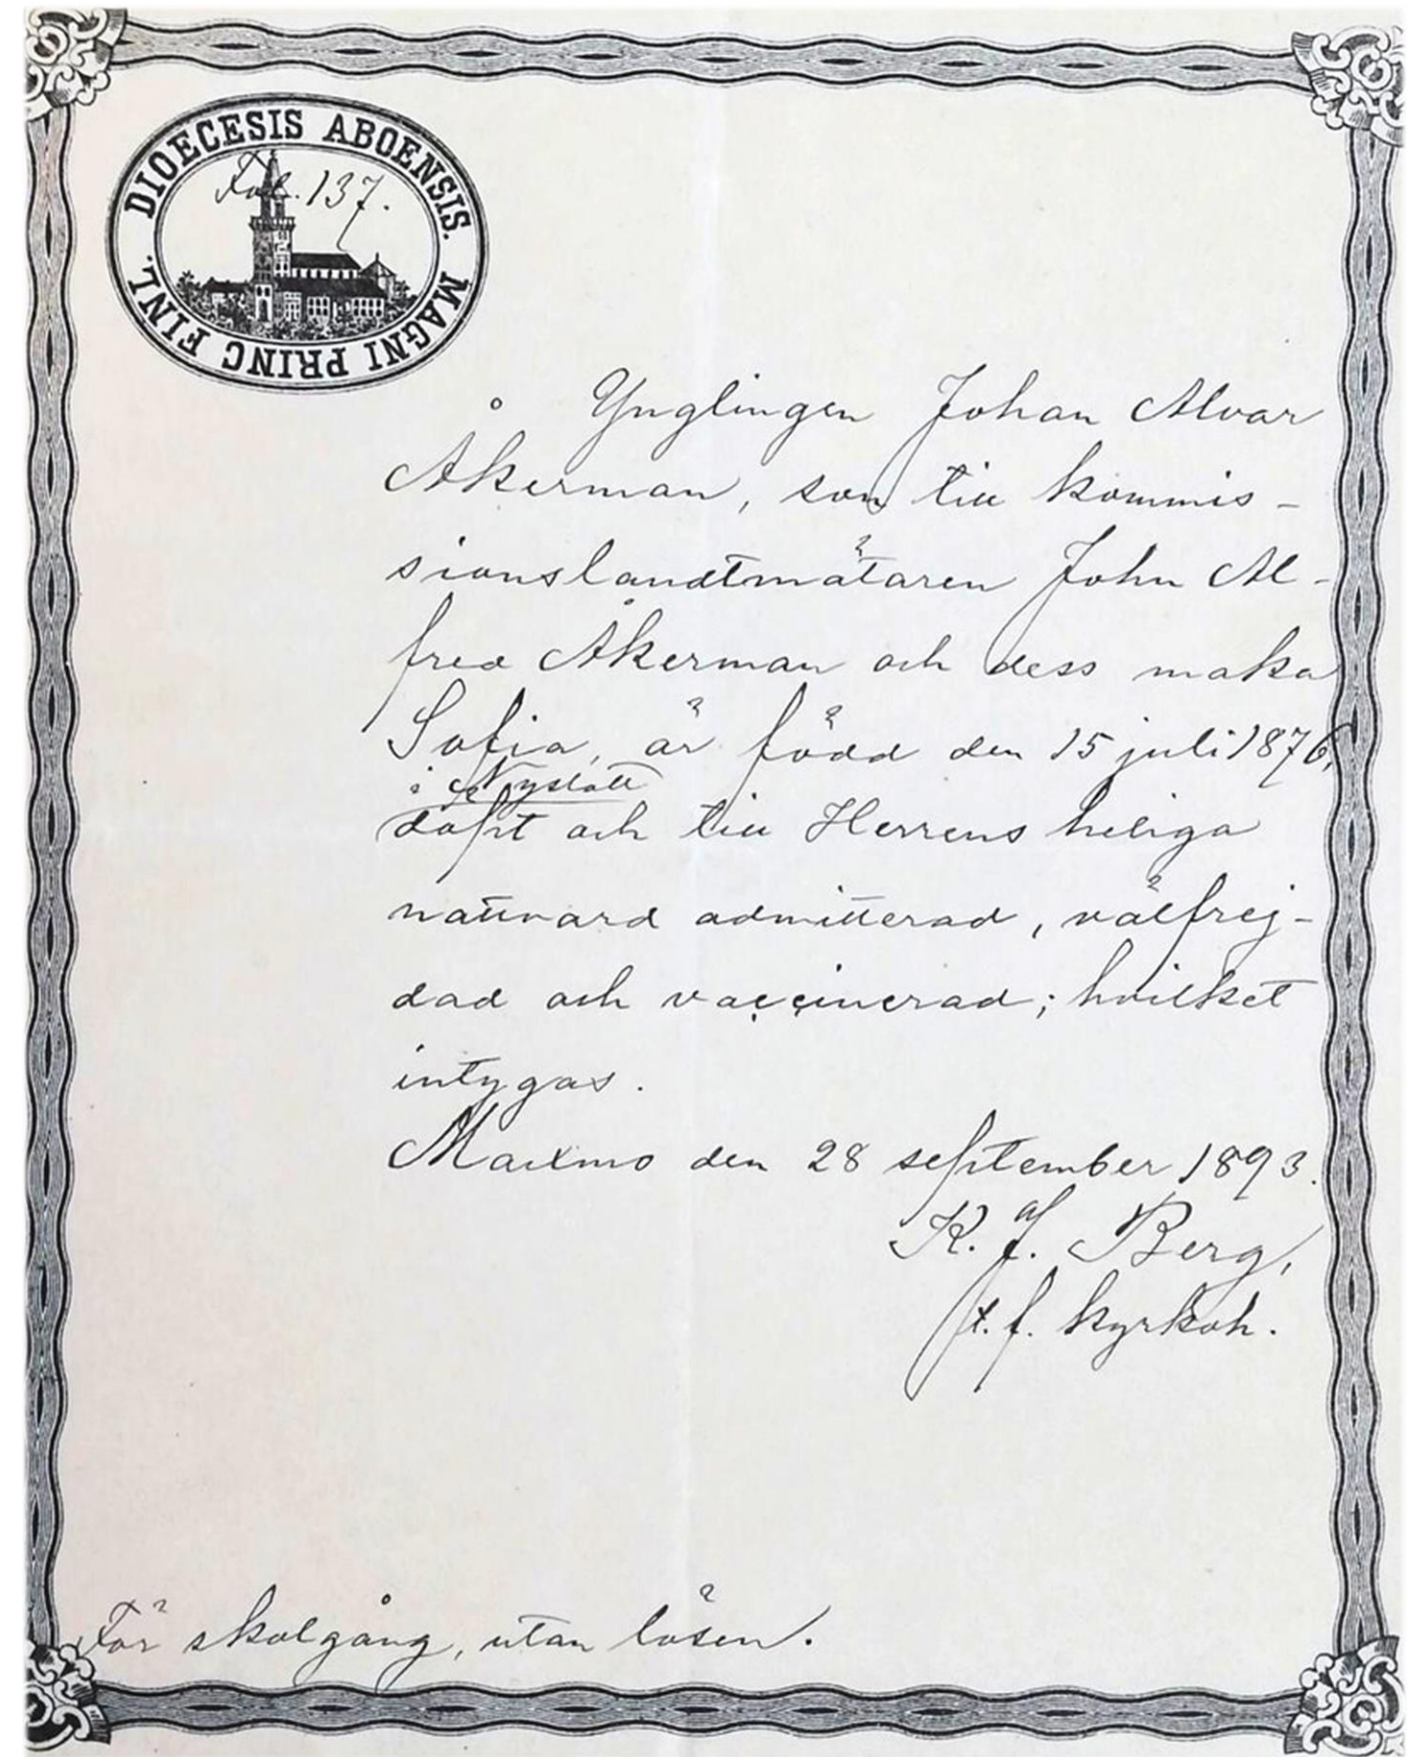 DIOECESIS ABOENSIS. MAGNI PRINC FINL.
Fol. 137.
Ynglingen Johan Alvar
Åkerman, son till kommis-
sionslandtmätaren John Al-
fred Åkerman och dess maka
Sofia, är född den 15 juli 1876,
i Nystott
döpt och till Herrens heliga
nattvard admitterad, välfrej-
dad och vaccinerad; hvilket
intygas.
Maxmo den 28 september 1893.
K. af J. Berg,
t. f. kyrkoh.
För skolgång, utan lösen.